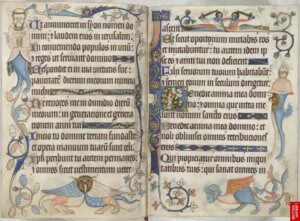 Ut annuncient in syon nomen do
mini: et laudem eius in ierusalem
In conueniendo populos in unum:
et reges ut seruiant domino
Respondit ei in uia uirtutis sue:
paucitatem dierum meorum nuncia
Ne reuoces me in dimidio dierum
meorum: in generacionem et genera
cionem anni tui
Inicio tu domine terram fundasti:
et opera manuum tuarum sunt celi
Ipsi peribunt tu autem permanes:
et omnes sicut uestimentum ueter
ascent
Et sicut opertorium mutabis eos
et mutabuntur: tu autem idem ip
se es et anni tui non deficient
Filii seruorum tuorum habitabunt:
et semen eorum in seculum dirigetur
anima mea
domino: et omnia que intra me
sunt nomini sancto eius
anima mea domino: et
noli obliuisci omnes retribuciones
eius
Qui propiciatur omnibus iniqui
tatibus tuis: qui sanat omnes